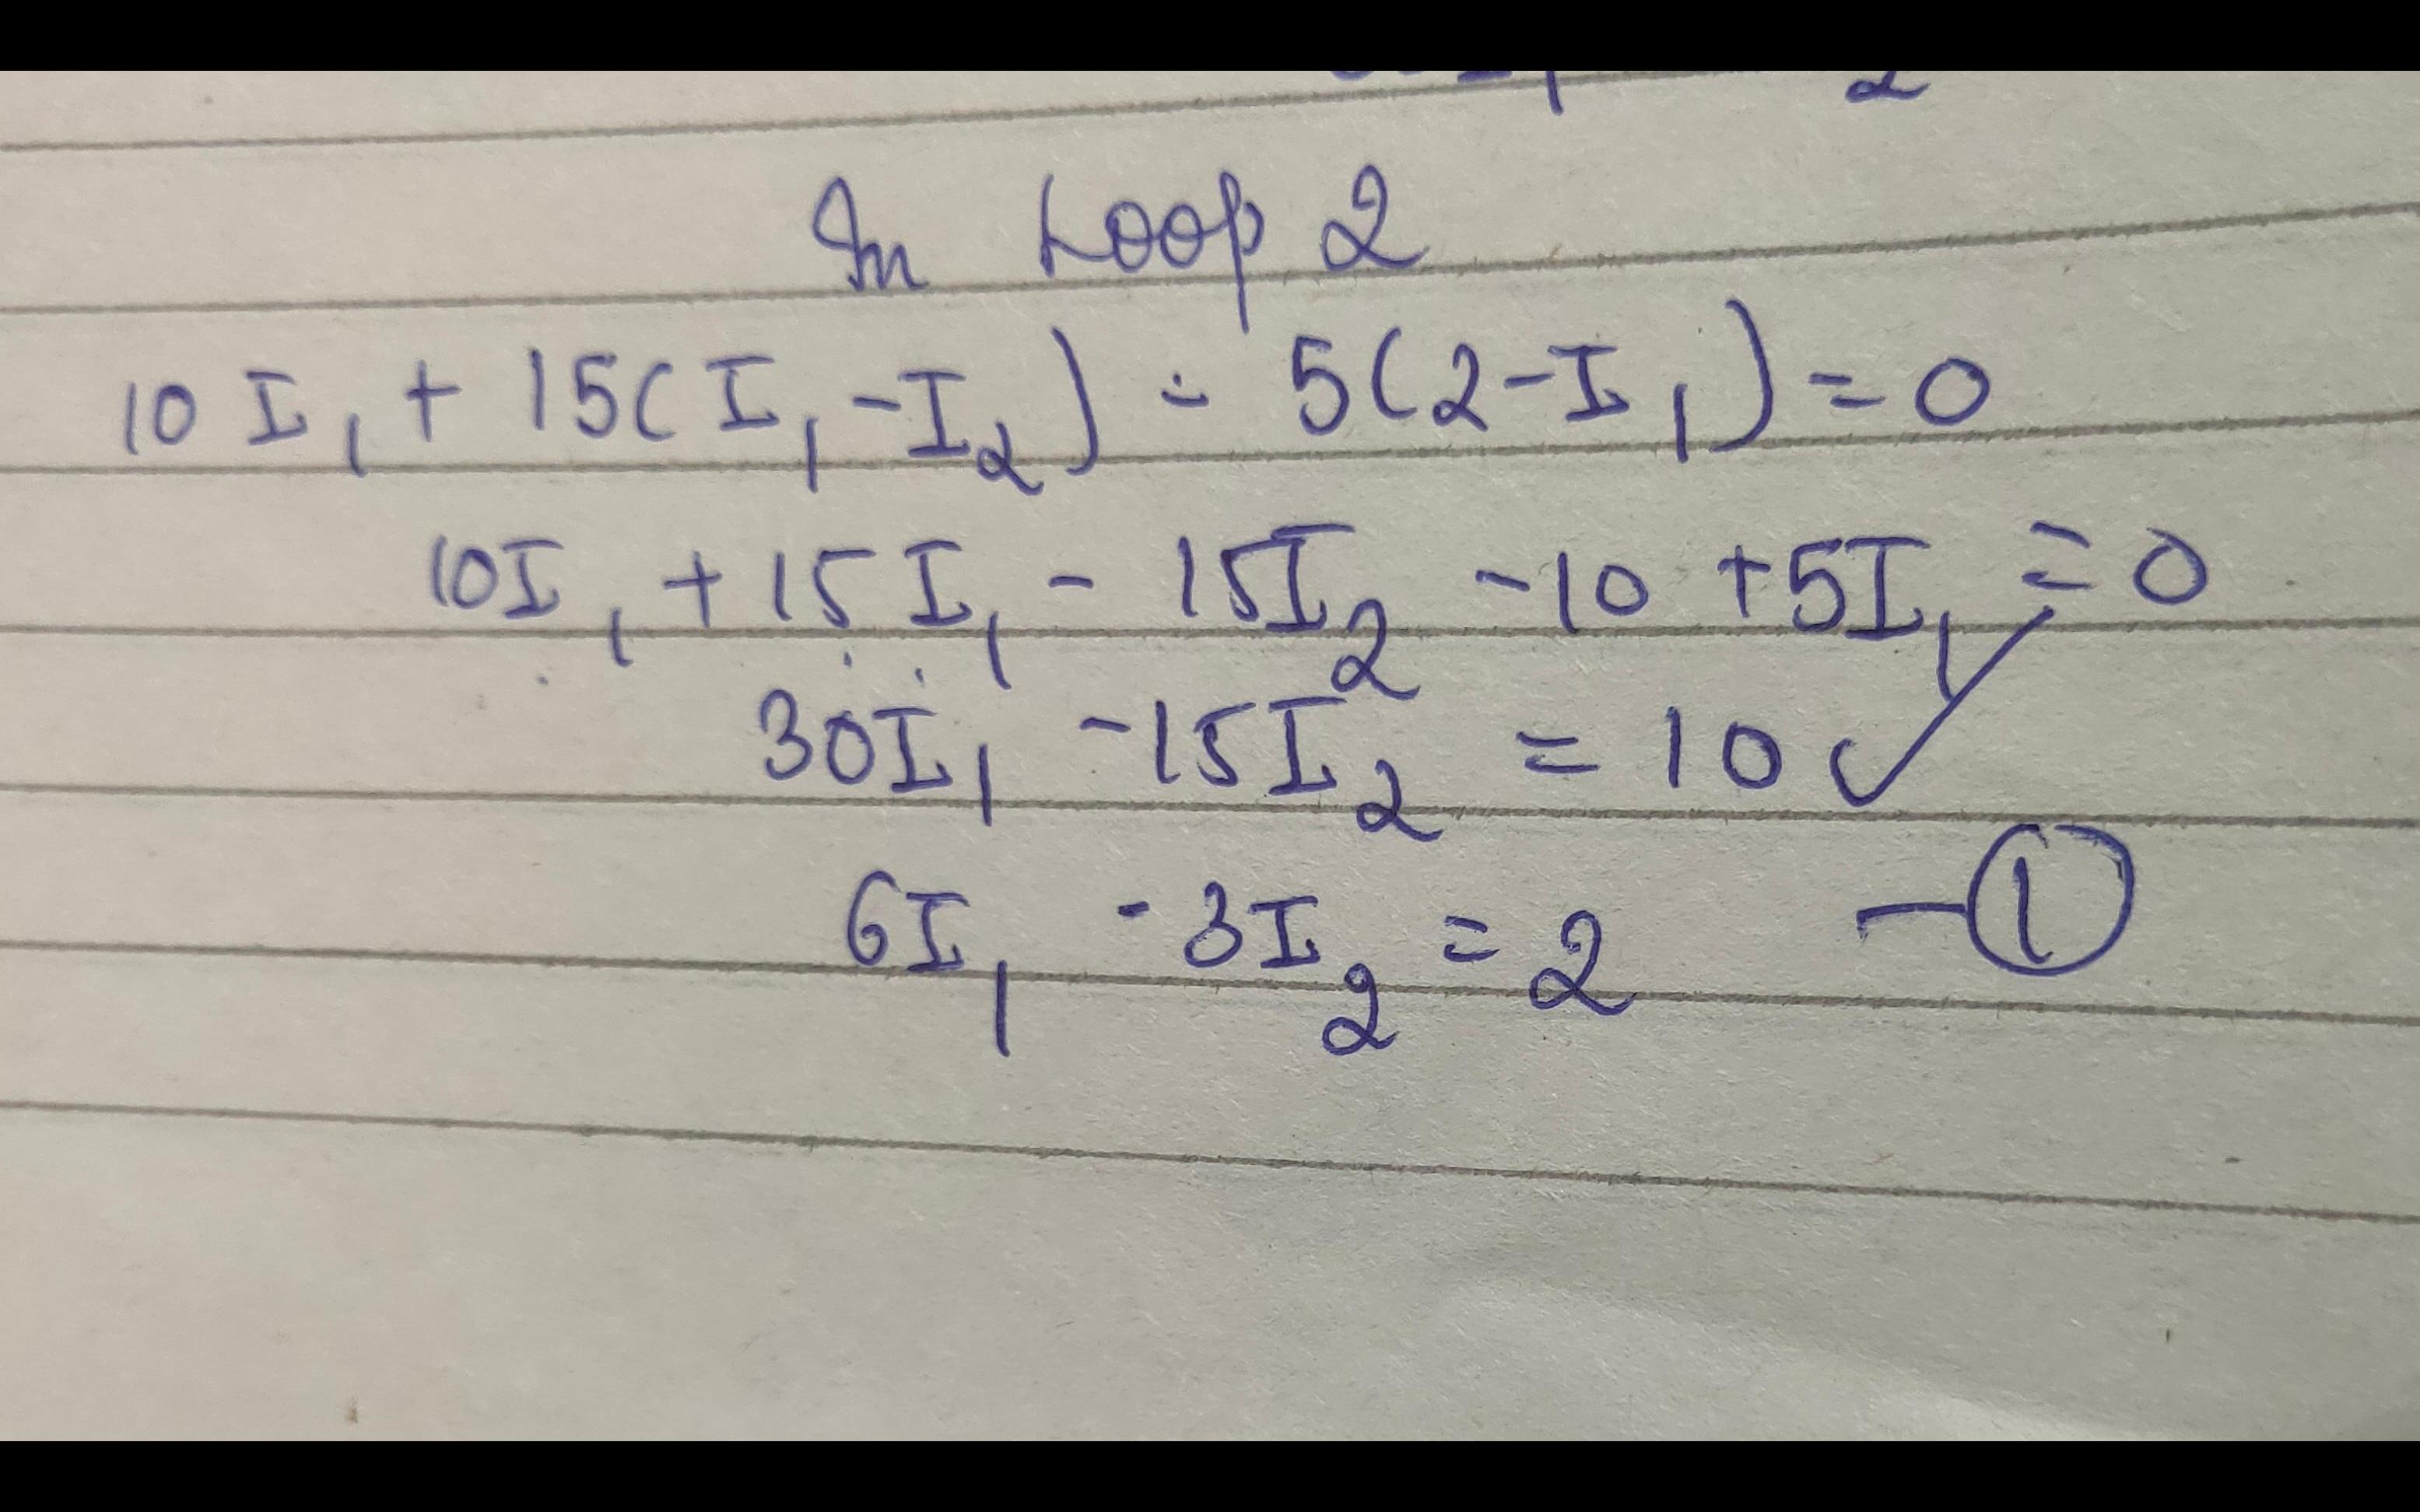 In Loop 2
10 I₁ + 15(I₁ - I₂) - 5(2-I₁) = 0
10I₁ + 15I₁ - 15I₂ -10 +5I₁ = 0
30I₁ -15I₂ = 10 ✓
6I₁ - 3I₂ = 2 —①